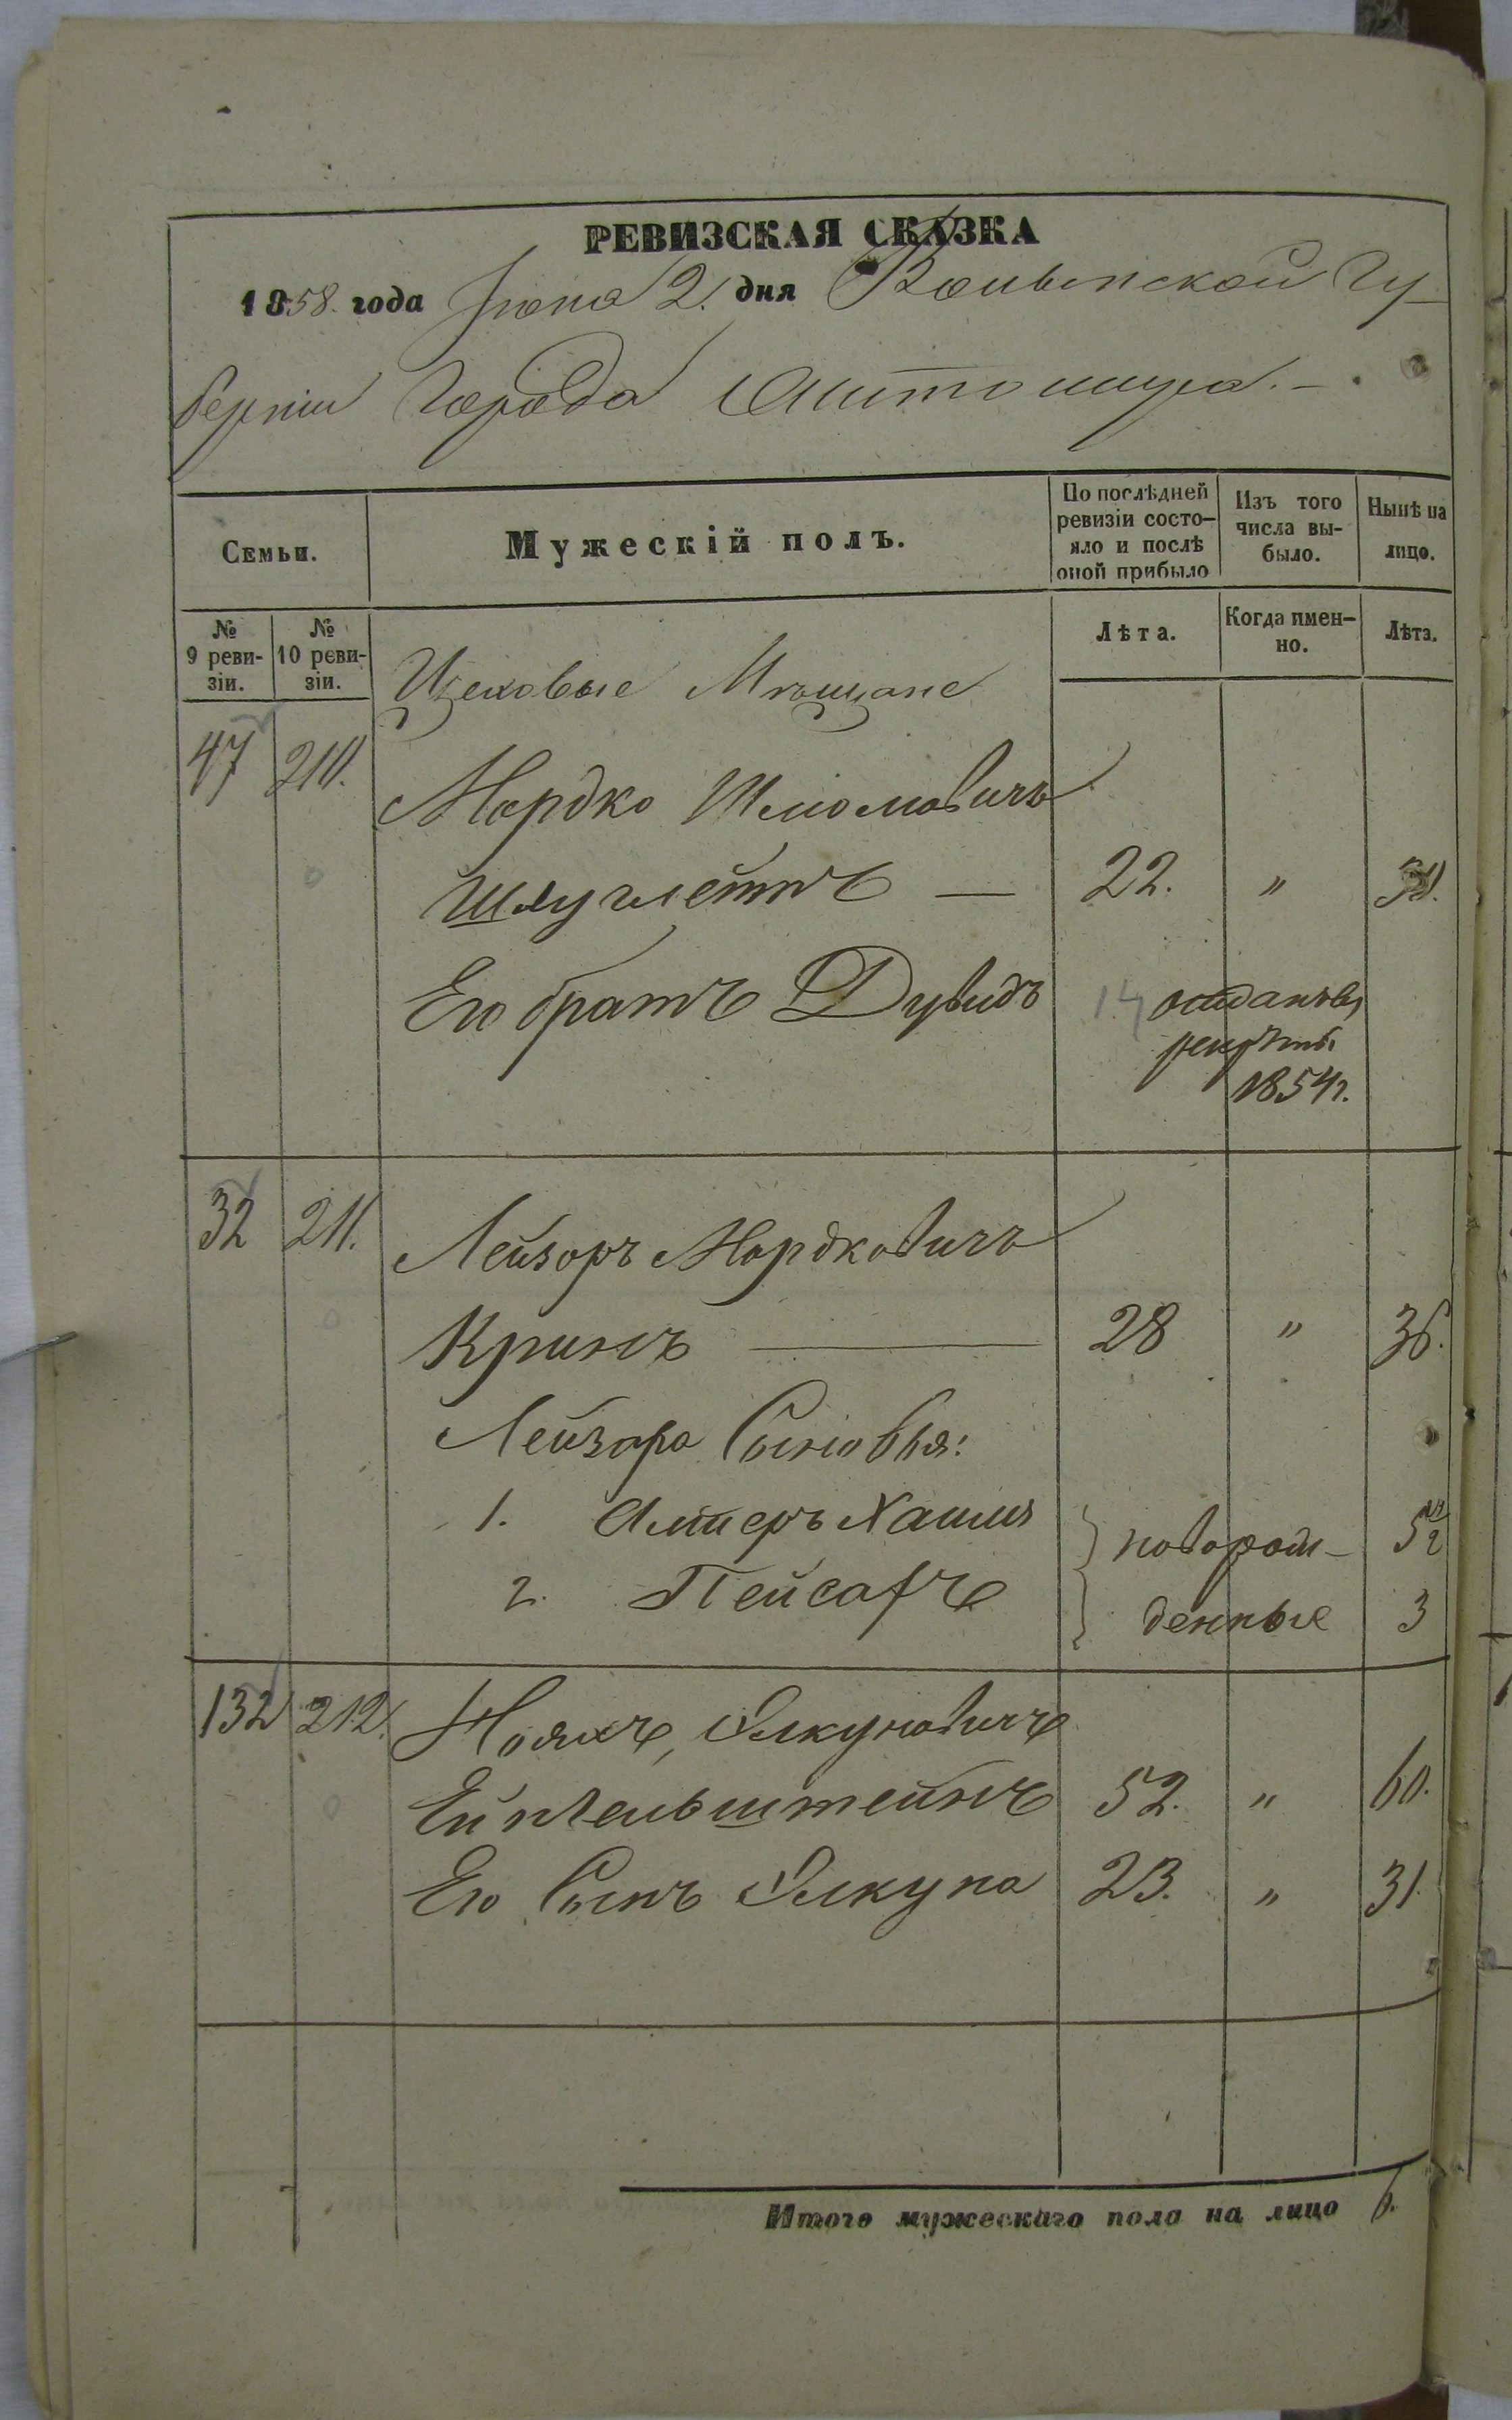 РЕВИЗСКАЯ СКАЗКА
1858. года Іюня 2. дня Волынской Гу-
берніи Города Житомира. —
Семьи.
Мужескій полъ.
По послѣдней
ревизіи состо-
яло и послѣ
оной прибыло
Изъ того
числа вы-
было.
Нынѣ на
лицо.
№
9 реви-
зіи.
№
10 реви-
зіи.
Лѣта.
Когда имен-
но.
Лѣта.
Цеховые Мѣщане
47 210.
Мордко Шломовичъ
— 22. „ 30.
Его братъ Дувидъ 14 отданъ въ
рекруты
1854г.
32 211. Лейзоръ Мордковичъ
Кринъ — 28 „ 36.
Лейзора Сыновья:
1. Алтеръ Хаимъ новорож- 5
2. Пейсахъ денные 3
132 212. Нояхъ, Элкуновичъ
Ейпельштейнъ 52. „ 60.
Его Сынъ Элкуна 23. „ 31.
Итого мужескаго пола на лицо 6.